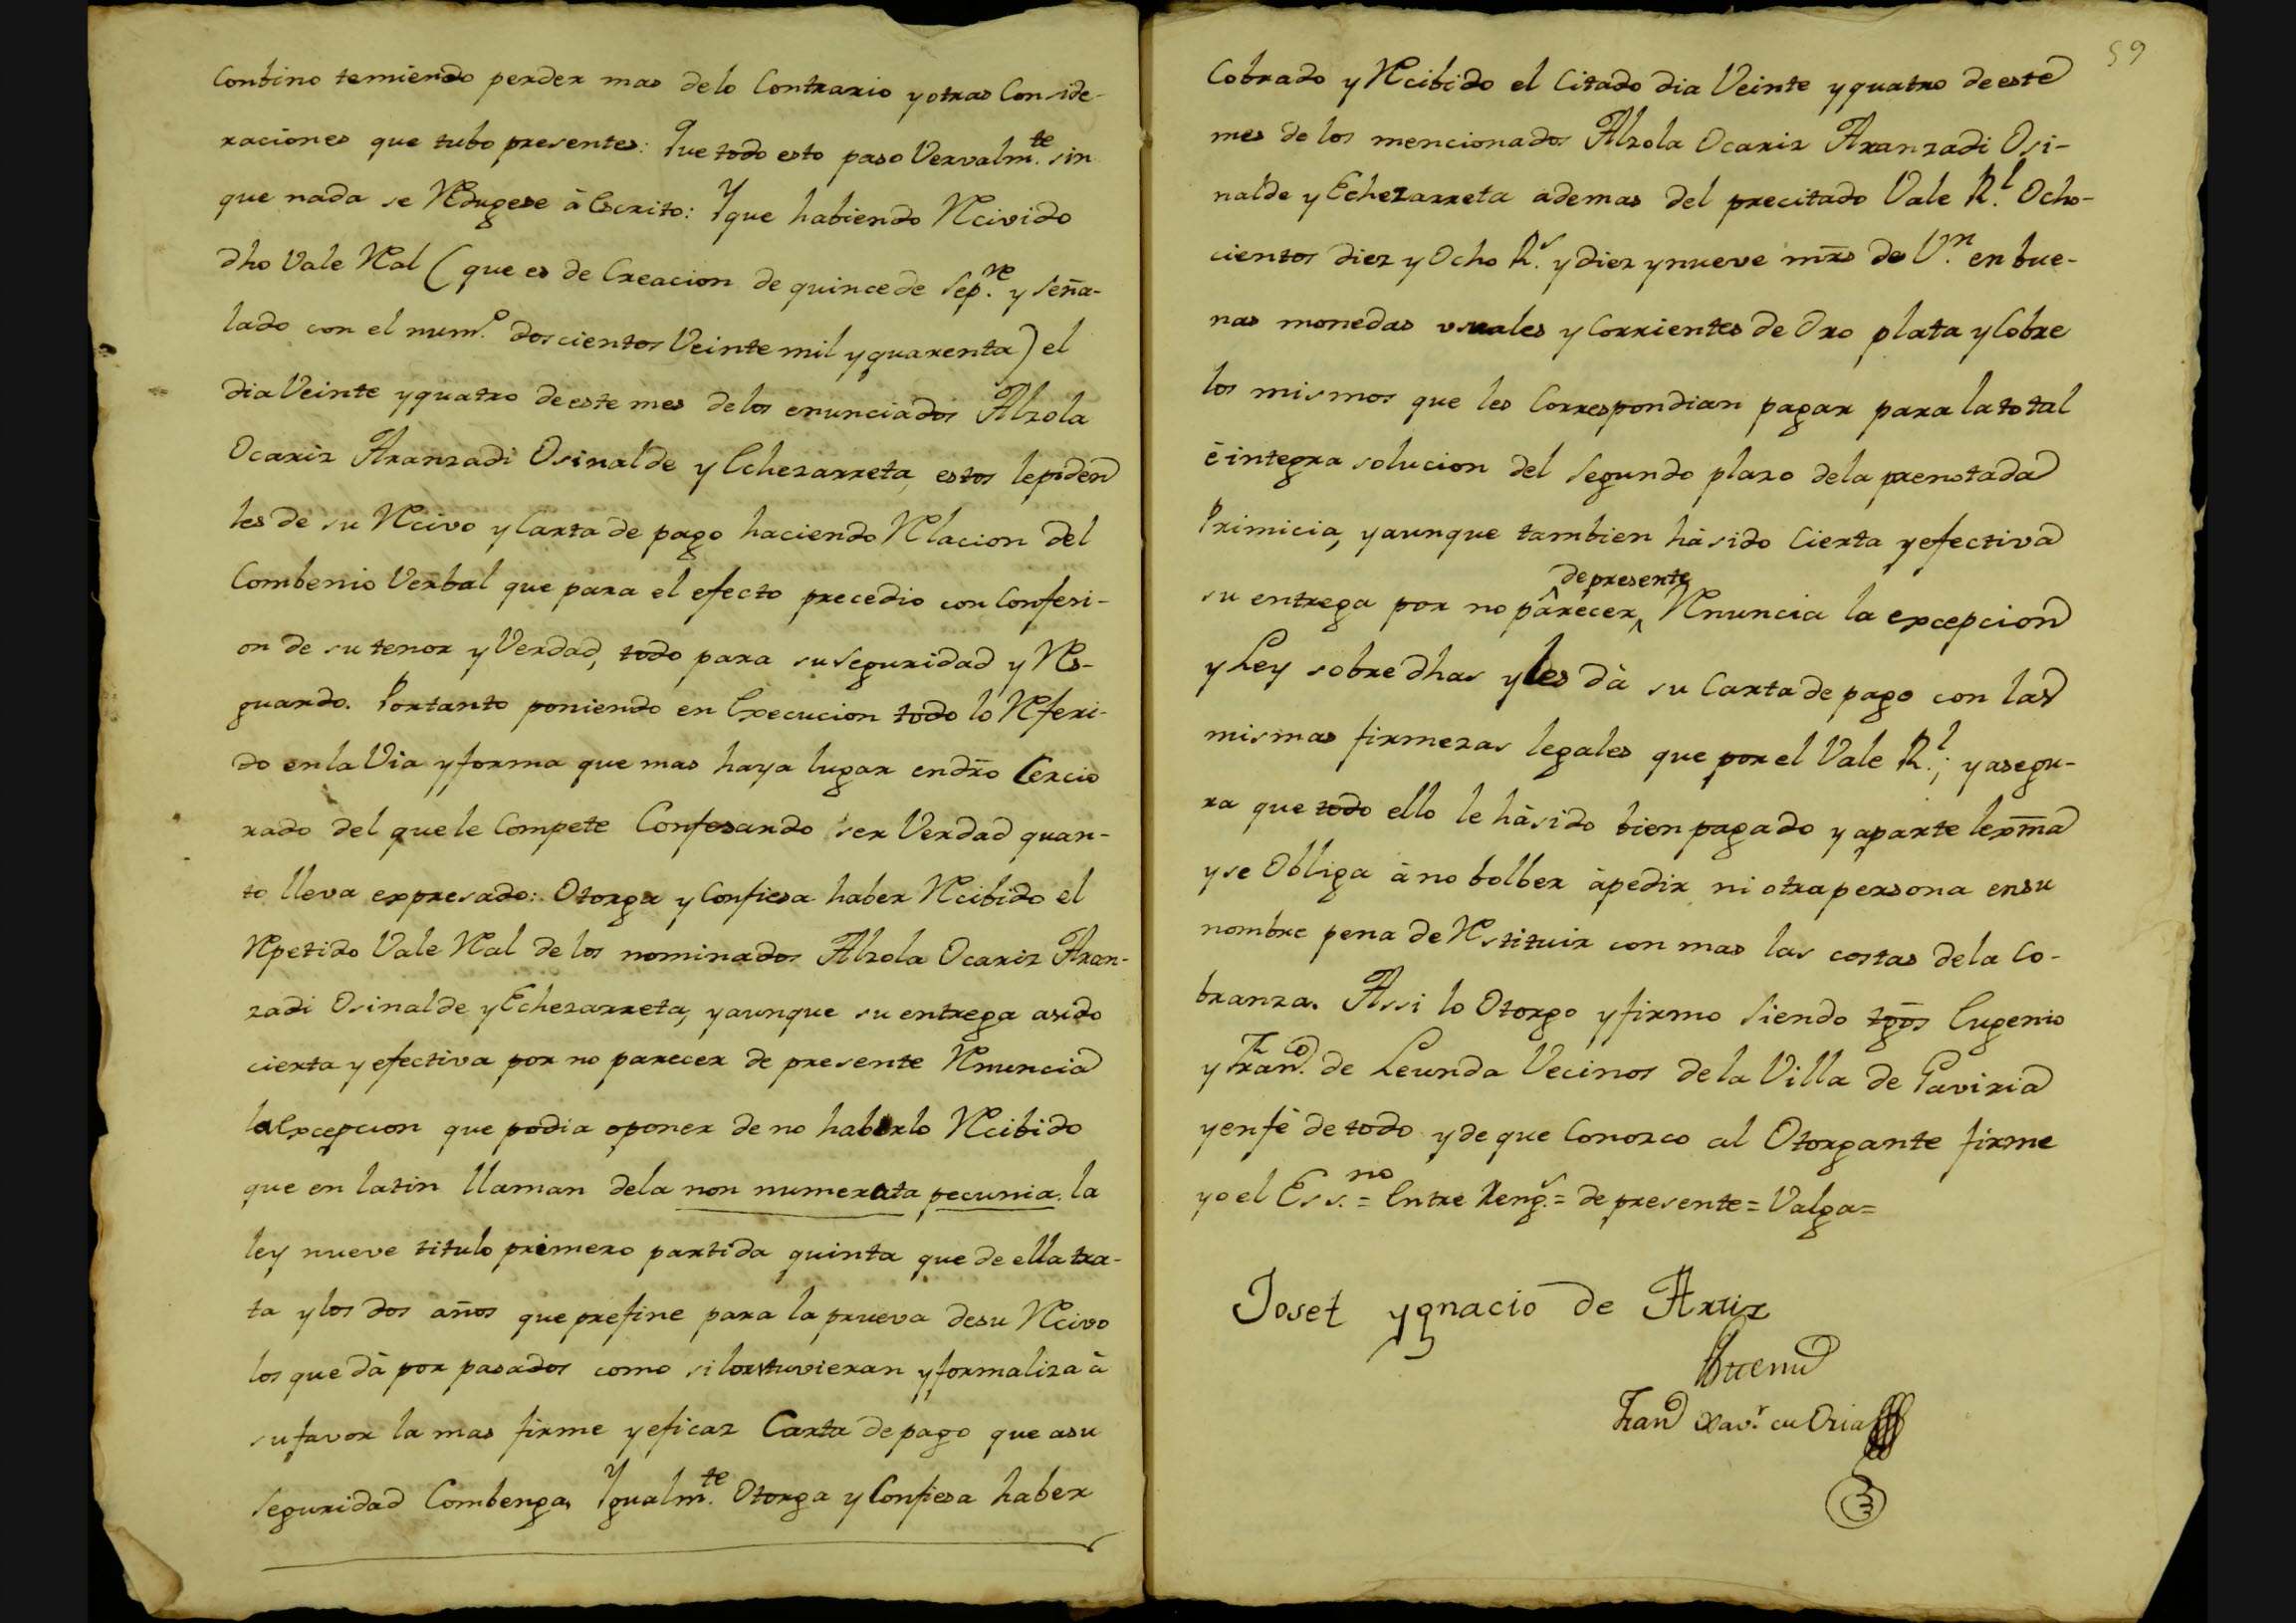 Conbino temiendo perder mas delo Contrario y otras Conside-
raciones que tubo presentes: Que todo esto paso Vervalm.te sin
que nada se Redugese à Escrito: Y que habiendo Recivido
dho Vale Real (que es de Creacion de quince de Sep.re y Seña-
lado con el num.o doscientos Veinte mil y quarenta) el
dia Veinte y quatro de este mes delos enunciados Alzola
Ocariz Aranzadi Osinalde y Echezarreta, estos le piden
les de su Recivo y Carta de pago haciendo Relacion del
Combenio Verbal que para el efecto precedio con Confesi-
on de su tenor y Verdad, todo para su Seguridad y Res-
guardo. Portanto poniendo en Execucion todo lo Referi-
do en la Via y forma que mas haya lugar en dr̃o Cercio
rado del que le Compete Confesando ser Verdad quan-
to lleva expresado: Otorga y Confiesa haber Recibido el
Repetido Vale Real de los nominados Alzola Ocariz Aran-
zadi Osinalde y Echezarreta, y aunque su entrega asido
cierta y efectiva por no parecer de presente Renuncia
la Excepcion que podia oponer de no haberlo Recibido
que en latin llaman dela non numerata pecunia, la
ley nueve titulo primero partida quinta que de ella tra-
ta y los dos años que prefine para la prueva desu Recivo
los que dà por pasados como si lo estuvieran y formaliza à
su favor la mas firme y eficaz Carta de pago que asu
Seguridad Combenga. Ygualm.te Otorga y Confiesa haber
59
Cobrado y Recibido el Citado dia Veinte y quatro de este
mes de los mencionados Alzola Ocariz Aranzadi Osi-
nalde y Echezarreta ademas del precitado Vale R.l Ocho-
cientos diez y Ocho R.s y diez y nueve mr̃s de V.n en bue-
nas monedas usuales y Corrientes de Oro plata y Cobre
los mismos que les Correspondian pagar para la total
è integra solucion del Segundo plazo dela prenotada
Primicia, y aunque tambien hà sido Cierta y efectiva
de presente
su entrega por no parecer, Renuncia la excepcion
y Ley sobredhas y les dà su Carta de pago con las
mismas firmezas legales que por el Vale R.l; y asegu-
ra que todo ello le hà sido bien pagado y aparte lexm̃a
y se Obliga à no bolber àpedir ni otra persona en su
nombre pena de Restituir con mas las costas dela Co-
branza. Assi lo Otorgo y firmo Siendo tgõs Eugenio
y Fran.co de Leunda Vecinos dela Villa de Gaviria
y en fè de todo y de que Conozco al Otorgante firme
yo el Ess.no = Entre Reng.s = de presente = Valga =
Josef Ygnacio de Aztiz
Antemi
Fran Xav.r